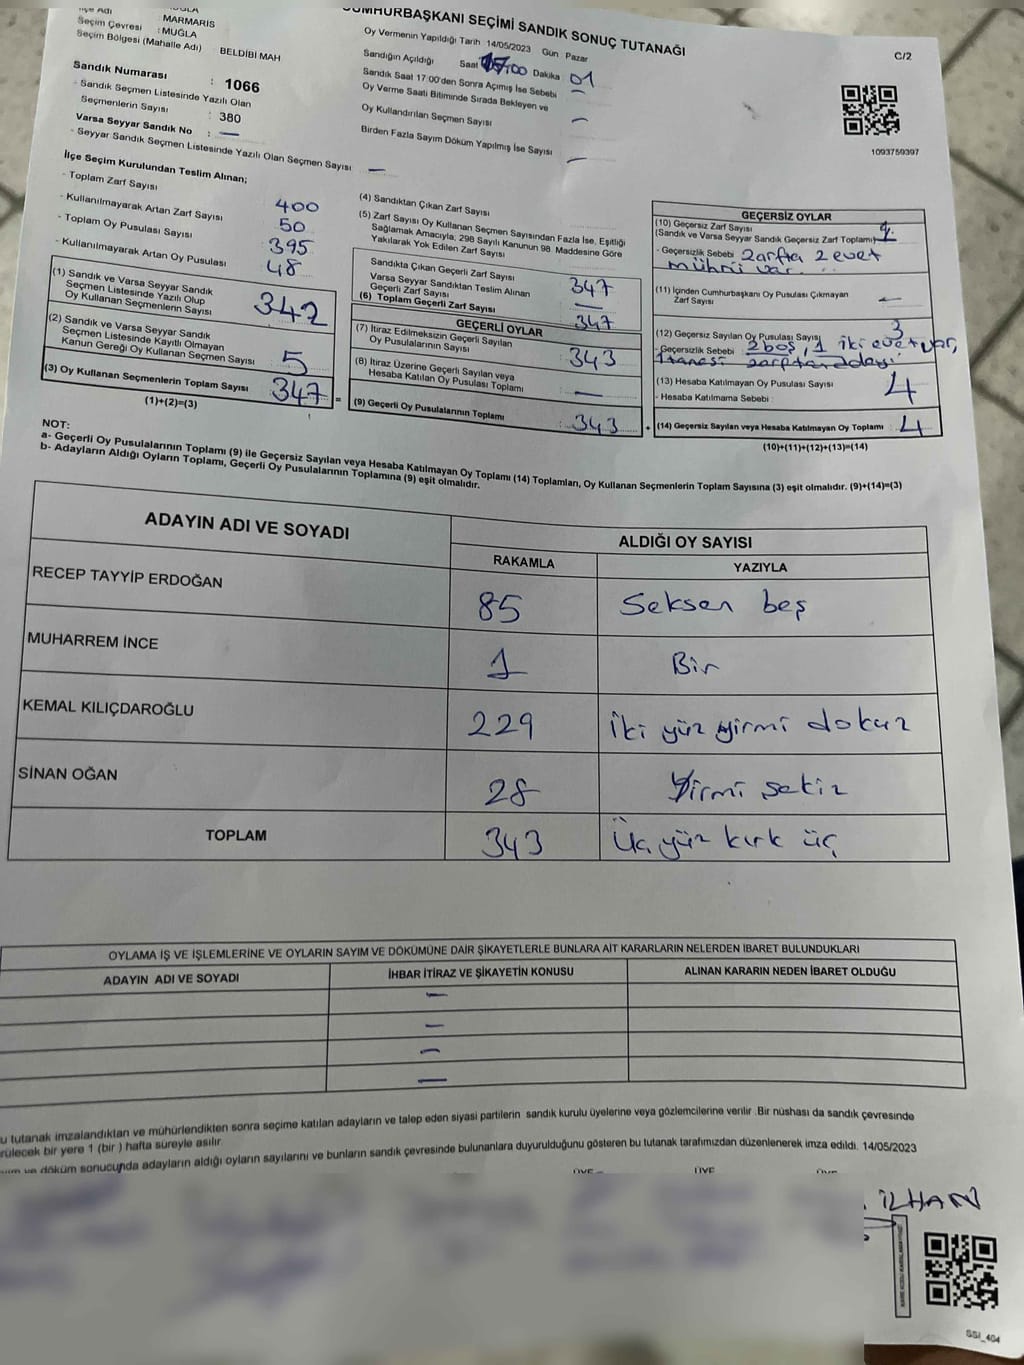 CUMHURBAŞKANI SEÇİMİ SANDIK SONUÇ TUTANAĞI
C/2
İlçe Adı : MARMARIS
Seçim Çevresi : MUĞLA
Seçim Bölgesi (Mahalle Adı) : BELDİBİ MAH
Sandık Numarası : 1066
- Sandık Seçmen Listesinde Yazılı Olan
Seçmenlerin Sayısı : 380
Varsa Seyyar Sandık No : —
- Seyyar Sandık Seçmen Listesinde Yazılı Olan Seçmen Sayısı —
Oy Vermenin Yapıldığı Tarih 14/05/2023 Gün Pazar
Sandığın Açıldığı Saat 17:00 Dakika 01
Sandık Saat 17:00'den Sonra Açımış İse Sebebi —
Oy Verme Saati Bitiminde Sırada Bekleyen ve
Oy Kullandırılan Seçmen Sayısı —
Birden Fazla Sayım Döküm Yapılmış İse Sayısı —
1093759397
İlçe Seçim Kurulundan Teslim Alınan;
- Toplam Zarf Sayısı 400
- Kullanılmayarak Artan Zarf Sayısı 50
- Toplam Oy Pusulası Sayısı 395
- Kullanılmayarak Artan Oy Pusulası 48
(1) Sandık ve Varsa Seyyar Sandık
Seçmen Listesinde Yazılı Olup
Oy Kullanan Seçmenlerin Sayısı 342
(2) Sandık ve Varsa Seyyar Sandık
Seçmen Listesinde Kayıtlı Olmayan
Kanun Gereği Oy Kullanan Seçmen Sayısı 5
(3) Oy Kullanan Seçmenlerin Toplam Sayısı 347 =
(1)+(2)=(3)
(4) Sandıktan Çıkan Zarf Sayısı
(5) Zarf Sayısı Oy Kullanan Seçmen Sayısından Fazla İse, Eşitliği
Sağlamak Amacıyla, 298 Sayılı Kanunun 98. Maddesine Göre
Yakılarak Yok Edilen Zarf Sayısı
Sandıkta Çıkan Geçerli Zarf Sayısı 347
Varsa Seyyar Sandıktan Teslim Alınan
Geçerli Zarf Sayısı —
(6) Toplam Geçerli Zarf Sayısı 347
GEÇERLİ OYLAR
(7) İtiraz Edilmeksizin Geçerli Sayılan
Oy Pusulalarının Sayısı 343
(8) İtiraz Üzerine Geçerli Sayılan veya
Hesaba Katılan Oy Pusulası Toplamı —
(9) Geçerli Oy Pusulalarının Toplamı 343 +
GEÇERSİZ OYLAR
(10) Geçersiz Zarf Sayısı
(Sandık ve Varsa Seyyar Sandık Geçersiz Zarf Toplamı)
- Geçersizlik Sebebi 2arfta 2 evet
mührü var.
(11) İçinden Cumhurbaşkanı Oy Pusulası Çıkmayan
Zarf Sayısı —
(12) Geçersiz Sayılan Oy Pusulası Sayısı 3
- Geçersizlik Sebebi 2 boş, 1 iki evet var,
1 tanesi
(13) Hesaba Katılmayan Oy Pusulası Sayısı 4
- Hesaba Katılmama Sebebi
(14) Geçersiz Sayılan veya Hesaba Katılmayan Oy Toplamı : 4
(10)+(11)+(12)+(13)=(14)
NOT:
a- Geçerli Oy Pusulalarının Toplamı (9) ile Geçersiz Sayılan veya Hesaba Katılmayan Oy Toplamı (14) Toplamları, Oy Kullanan Seçmenlerin Toplam Sayısına (3) eşit olmalıdır. (9)+(14)=(3)
b- Adayların Aldığı Oyların Toplamı, Geçerli Oy Pusulalarının Toplamına (9) eşit olmalıdır.
ADAYIN ADI VE SOYADI ALDIĞI OY SAYISI
RAKAMLA YAZIYLA
RECEP TAYYİP ERDOĞAN 85 Seksen beş
MUHARREM İNCE 1 Bir
KEMAL KILIÇDAROĞLU 229 İki yüz yirmi dokuz
SİNAN OĞAN 28 Yirmi sekiz
TOPLAM 343 Üç yüz kırk üç
OYLAMA İŞ VE İŞLEMLERİNE VE OYLARIN SAYIM VE DÖKÜMÜNE DAİR ŞİKAYETLERLE BUNLARA AİT KARARLARIN NELERDEN İBARET BULUNDUKLARI
ADAYIN ADI VE SOYADI İHBAR İTİRAZ VE ŞİKAYETİN KONUSU ALINAN KARARIN NEDEN İBARET OLDUĞU
—
—
—
—
u tutanak imzalandıktan ve mühürlendikten sonra seçime katılan adayların ve talep eden siyasi partilerin sandık kurulu üyelerine veya gözlemcilerine verilir .Bir nüshası da sandık çevresinde
rülecek bir yere 1 (bir ) hafta süreyle asılır.
yım ve döküm sonucunda adayların aldığı oyların sayılarını ve bunların sandık çevresinde bulunanlara duyurulduğunu gösteren bu tutanak tarafımızdan düzenlenerek imza edildi. 14/05/2023
ÜYE ÜYE ÜYE
İLHAN
SSI_404